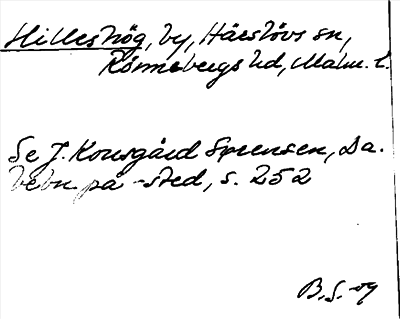 Hilleshög, by, Härslövs sn,
Rönnebergs hd, Malm. l.
Se J. Kousgård Sørensen, Da.
bebn. på -sted, s. 252
B. S-og